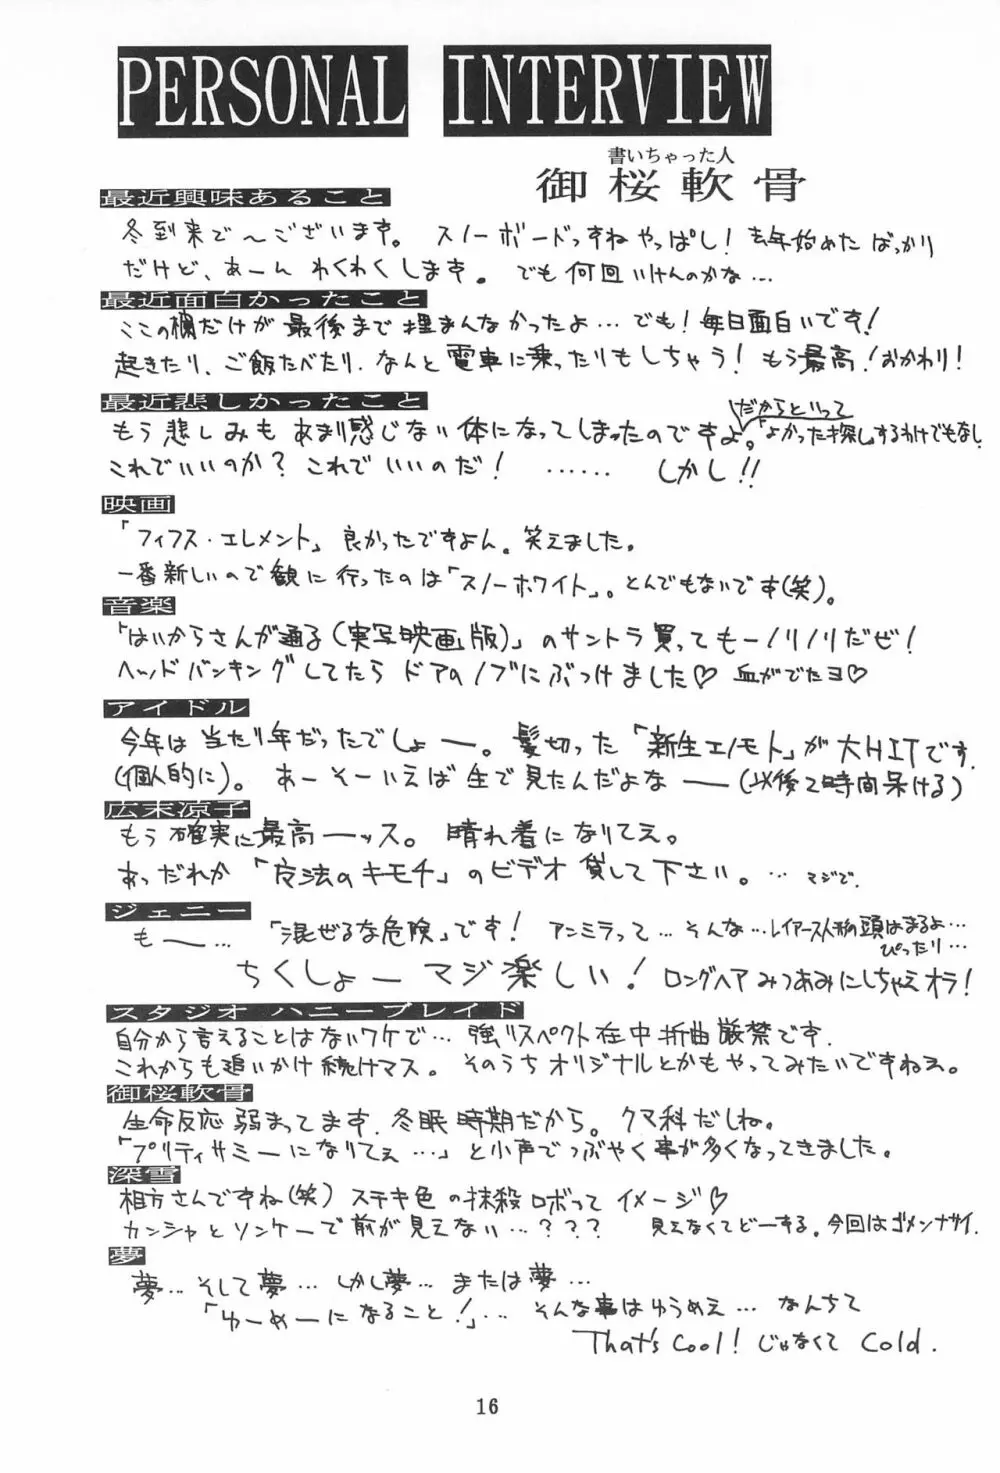 PERSONAL INTERVIEW
書いちゃった人
御桜軟骨
最近興味あること
冬到来で〜ございます。 スノーボードっすねやっぱし！去年始めたばっかり
だけど、あーん わくわくします。 でも何回いけんのかな…
最近面白かったこと
ここの欄だけが最後まで埋まんなかったよ…でも！毎日面白いです！
起きたり、ご飯たべたり、なんと電車に乗ったりもしちゃう！もう最高！おかわり！
最近悲しかったこと
もう悲しみもあまり感じない体になってしまったのですよ。だからといって「よかった探しするわけでもなし
これでいいのか？これでいいのだ！ …… しかし!!
映画
「フィフス・エレメント」良かったですよん。笑えました。
一番新しいので観に行ったのは「スノーホワイト」。とんでもないです(笑)。
音楽
「はいからさんが通る(実写映画版)」のサントラ買ってもーノリノリだぜ！
ヘッドバンキングしてたらドアのノブにぶつけました♡ 血がでたヨ♡
アイドル
今年は当たり年だったでしょー。髪切った「新生エノモト」が大HITです.
(個人的に)。あーそーいえば生で見たんだよなー(以後2時間呆ける)
広末涼子
もう確実に最高ーッス。晴れ着になりてえ。
あっだれか「魔法のキモチ」のビデオ貸して下さい。… マジで.
ジェニー
も〜… 「混ぜるな危険」です！ アンミラって…そんな…レイアース人形の頭はまるよ…
ぴったり…
ちくしょー マジ楽しい！ ロングヘアみつあみにしちゃえオラ！
スタジオ ハニーブレイド
自分から言えることはないワケで… 強リスペクト在中折曲厳禁です.
これからも追いかけ続けマス。そのうちオリジナルとかもやってみたいですねえ。
御桜軟骨
生命反応弱まってます.冬眠時期だから。クマ科だしね。
「プリティサミーになりてえ…」と小声でつぶやく事が多くなってきました。
深雪
相方さんですね(笑) ステキ色の抹殺ロボってイメージ♡
カンシャとソンケーで前が見えない…？？？ 見えなくてどーする。今回はゴメンナサイ.
夢
夢…そして夢…しかし夢…または夢…
「ゆーめーになること！」… そんな事はゆうめえ… なんちて
That's Cool! じゃなくて Cold.
16